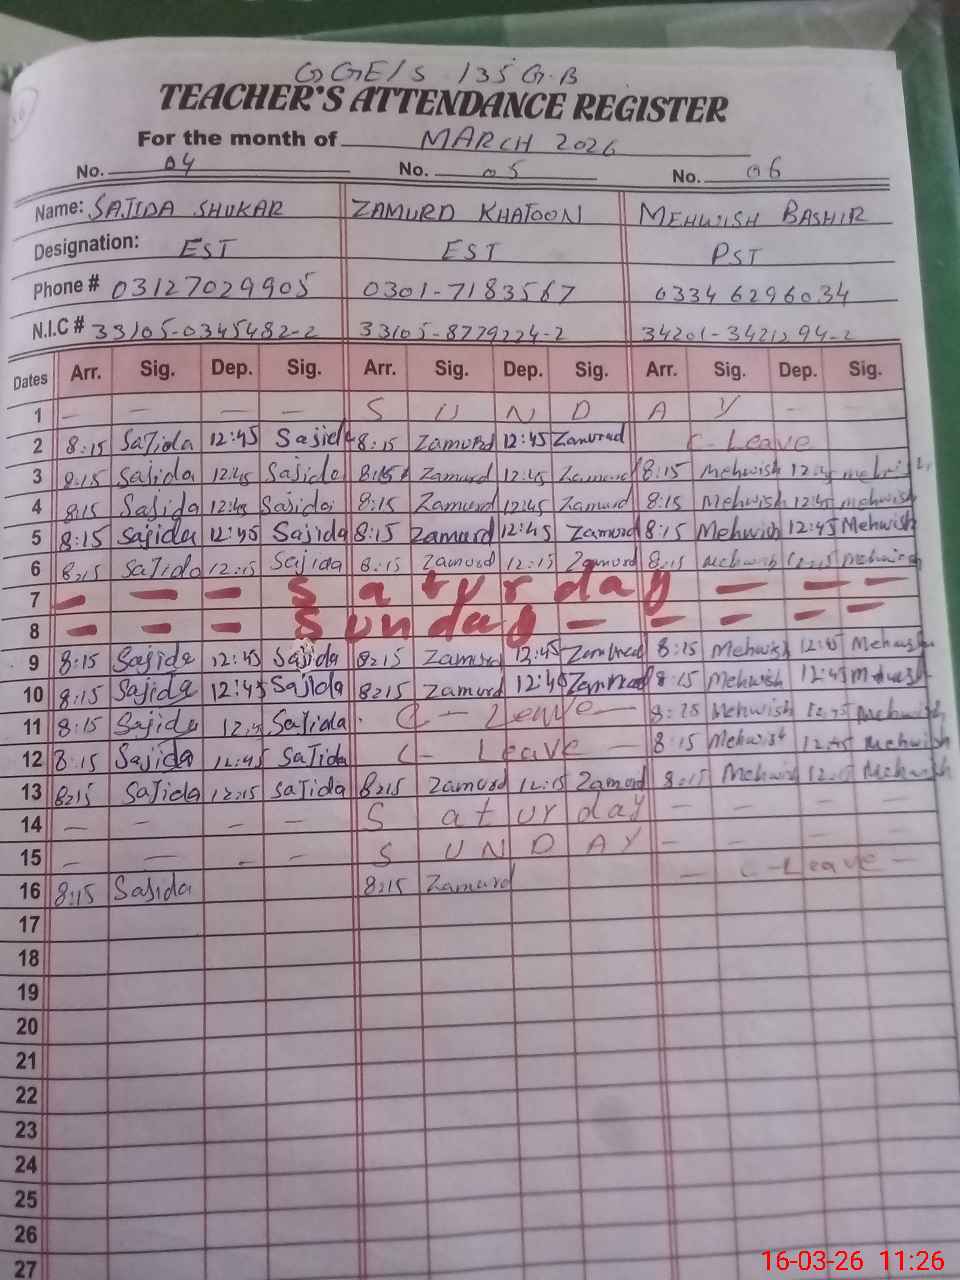 G GE/S 135 G.B
TEACHER'S ATTENDANCE REGISTER
For the month of MARCH 2026
No. 04 No. 05 No. 06
Name: SAJIDA SHUKAR ZAMURD KHATOON MEHWISH BASHIR
Designation: EST EST PST
Phone # 03127029905 0301-7183567 0334 6296034
N.I.C # 33105-0345482-2 33105-8779224-2 34201-3421294-2
Dates Arr. Sig. Dep. Sig. Arr. Sig. Dep. Sig. Arr. Sig. Dep. Sig.
1 - - - - S U N D A Y - -
2 8:15 Sajida 12:45 Sajida 8:15 Zamurd 12:45 Zamurad C-Leave
3 8:15 Sajida 12:45 Sajida 8:15 Zamurd 12:45 Zamurd 8:15 Mehwish 12:45 mehwish
4 8:15 Sajida 12:45 Sajida 8:15 Zamurd 12:45 Zamurd 8:15 Mehwish 12:45 mehwish
5 8:15 Sajida 12:45 Sajida 8:15 Zamurd 12:45 Zamurd 8:15 Mehwish 12:45 Mehwish
6 8:15 Sajida 12:15 Sajida 8:15 Zamurd 12:15 Zamurd 8:15 Mehwish 12:15 Mehwish
7 - - - S a t u r d a y - - -
8 - - - S u n d a y - - - - -
9 8:15 Sajida 12:45 Sajida 8:15 Zamurd 12:45 Zamurad 8:15 Mehwish 12:45 Mehwish
10 8:15 Sajida 12:45 Sajida 8:15 Zamurd 12:45 Zamurad 8:15 Mehwish 12:45 Mehwish
11 8:15 Sajida 12:45 Sajida C - Leave - 8:15 Mehwish 12:45 Mehwish
12 8:15 Sajida 12:45 Sajida C - Leave - 8:15 Mehwish 12:45 Mehwish
13 8:15 Sajida 12:15 Sajida 8:15 Zamurd 12:15 Zamurd 8:15 Mehwish 12:15 Mehwish
14 - - - - S a t u r d a y - - - -
15 - - - - S U N D A Y - - - -
16 8:15 Sajida 8:15 Zamurd - C-Leave -
17
18
19
20
21
22
23
24
25
26
27
16-03-26 11:26